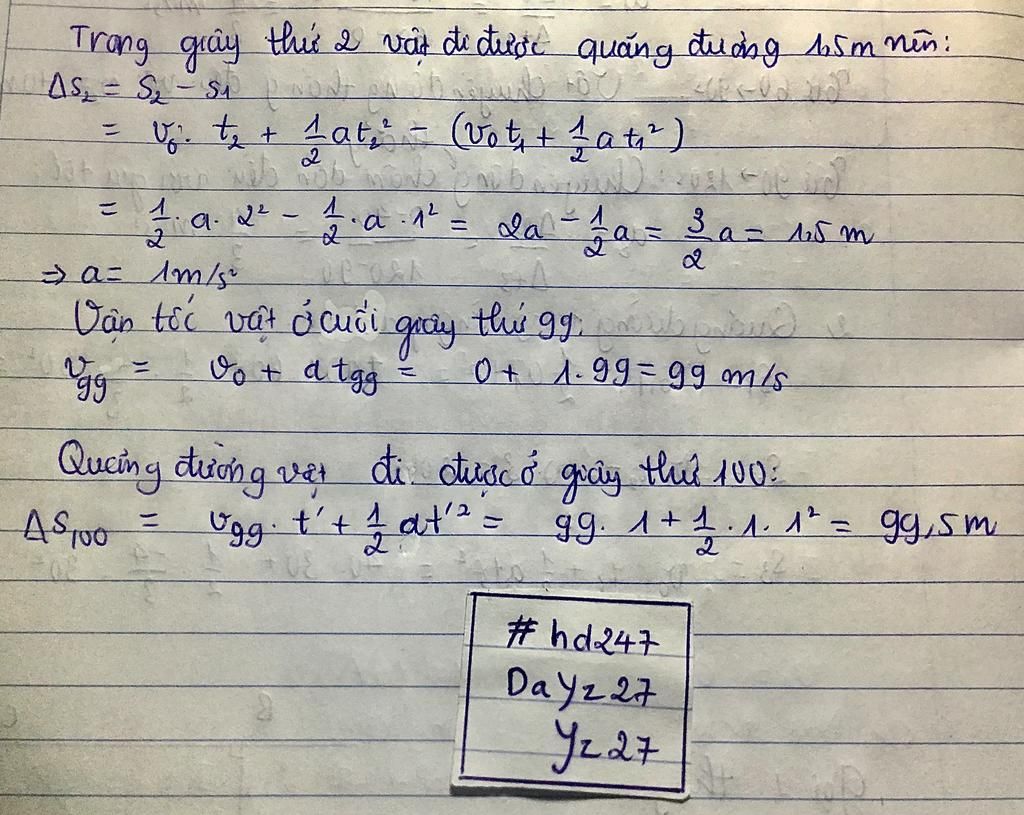 Trong giây thứ 2 vật đi được quãng đường 1,5m nên:
ΔS₂ = S₂ - S₁
= v₀. t₂ + 1/2 at₂² - (v₀t₁ + 1/2 a t₁²)
= 1/2 . a. 2² - 1/2 . a . 1² = 2a - 1/2 a = 3/2 a = 1,5 m
⇒ a = 1m/s²
Vận tốc vật ở cuối giây thứ 99:
v₉₉ = v₀ + at₉₉ = 0 + 1. 99 = 99 m/s
Quãng đường vật đi được ở giây thứ 100:
ΔS₁₀₀ = v₉₉. t' + 1/2 at'² = 99. 1 + 1/2 . 1. 1² = 99,5m
# hd247
DaYz27
Yz27